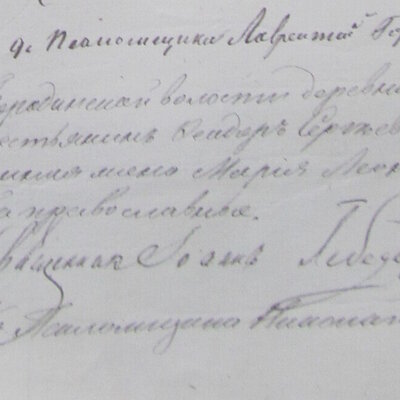 д. Псаломщика Лаврентій
Бородинской волости деревни
крестьянинъ Ѳеодоръ Сергѣев
жена Марія Леон
православные.
Священникъ Іоаннъ Лебеде
Псаломщикъ